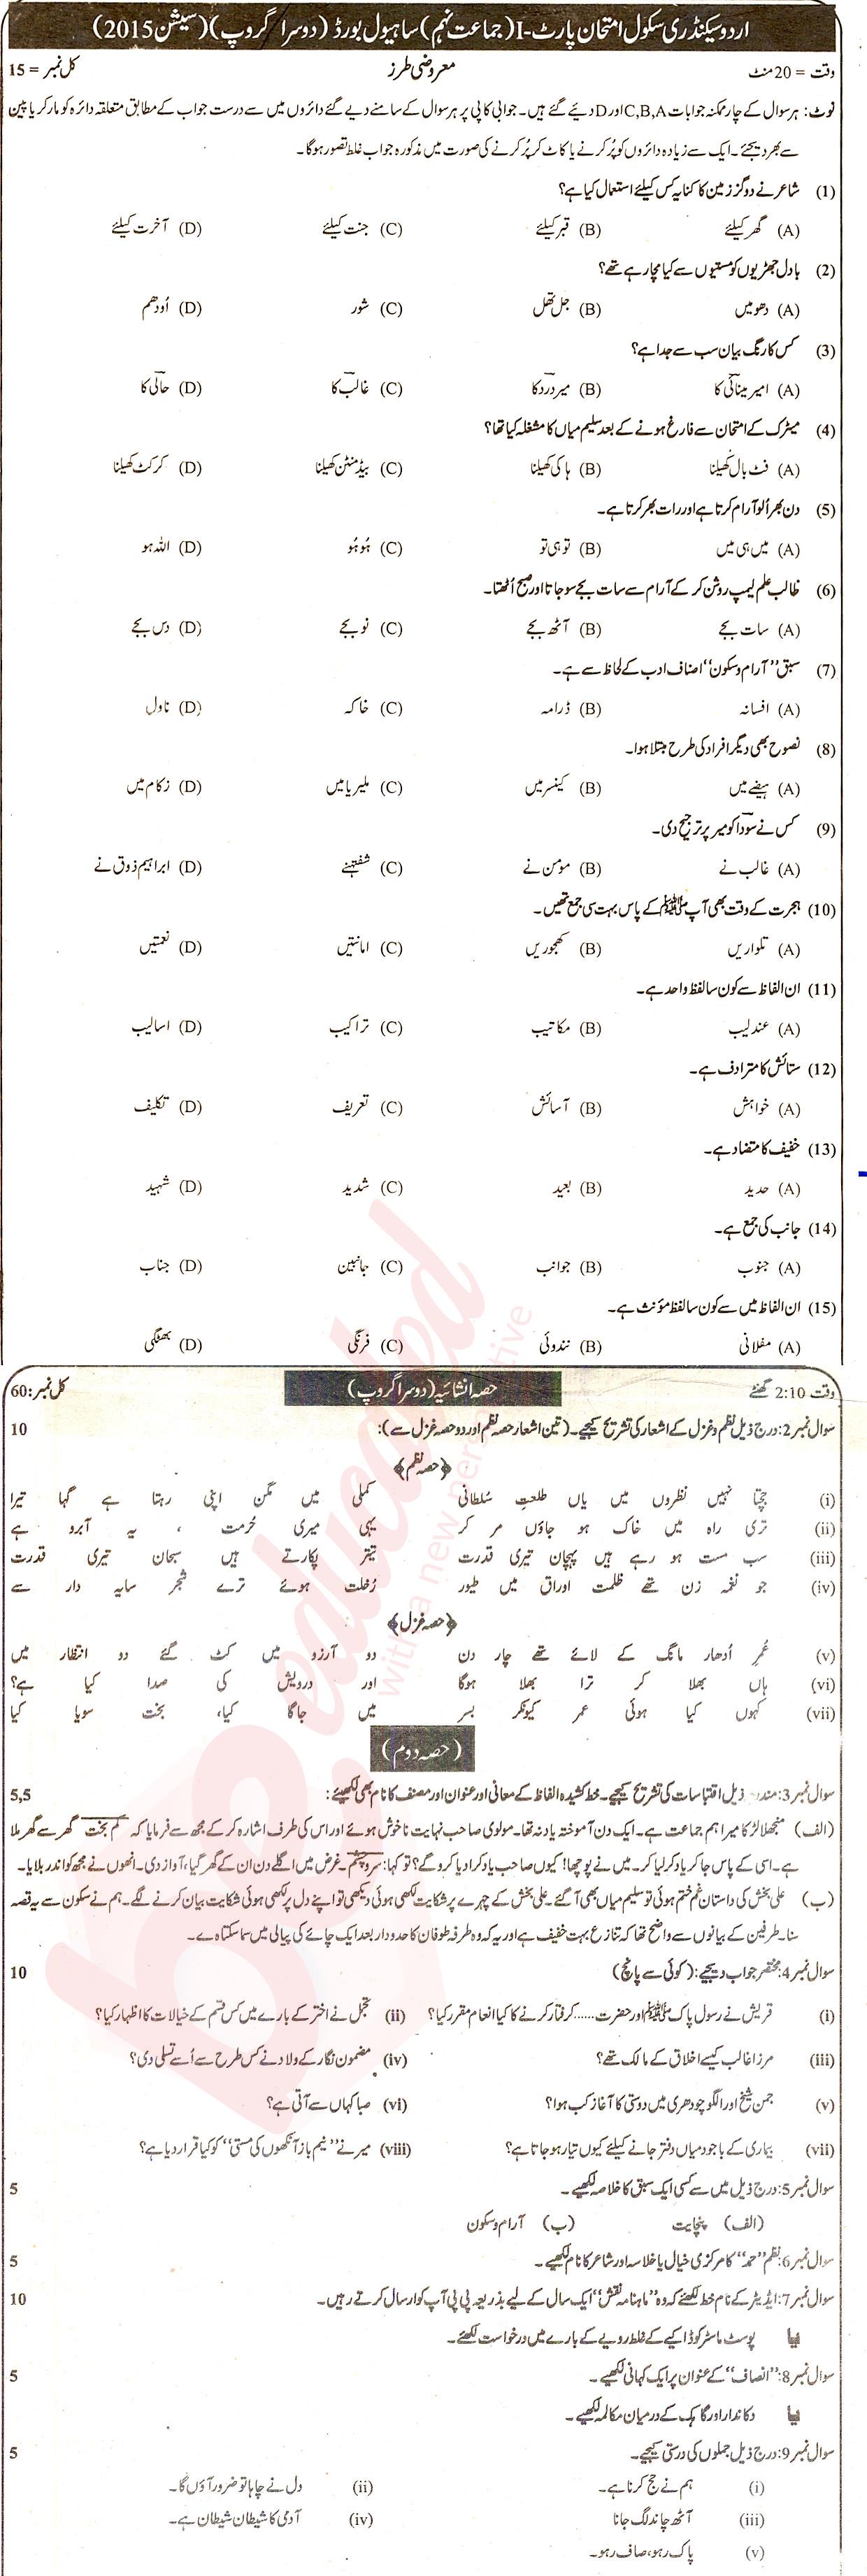 اردو سیکنڈری سکول امتحان پارٹ-I (جماعت نہم) ساہیوال بورڈ (دوسرا گروپ) (سیشن 2015)
وقت = 20 منٹ معروضی طرز کل نمبر = 15
نوٹ: ہر سوال کے چار ممکنہ جوابات C,B,A اور D دئیے گئے ہیں۔ جوابی کاپی پر ہر سوال کے سامنے دیے گئے دائروں میں سے درست جواب کے مطابق متعلقہ دائرہ کو مارکر یا پین
سے بھر دیجئے۔ ایک سے زیادہ دائروں کو پُر کرنے یا کاٹ کر پُر کرنے کی صورت میں مذکورہ جواب غلط تصور ہوگا۔
(1) شاعر نے دو گز زمین کا کنایہ کس کیلئے استعمال کیا ہے؟
(A) گھر کیلئے (B) قبر کیلئے (C) جنت کیلئے (D) آخرت کیلئے
(2) بادل جھڑیوں کو مستیوں سے کیا مچا رہے تھے؟
(A) دھومیں (B) جل تھل (C) شور (D) اُودھم
(3) کس کا رنگ بیان سب سے جدا ہے؟
(A) امیر مینائی کا (B) میر درد کا (C) غالب کا (D) حالی کا
(4) میٹرک کے امتحان سے فارغ ہونے کے بعد سلیم میاں کا مشغلہ کیا تھا؟
(A) فٹ بال کھیلنا (B) ہاکی کھیلنا (C) بیڈمنٹن کھیلنا (D) کرکٹ کھیلنا
(5) دن بھر اُلو آرام کرتا ہے اور رات بھر کرتا ہے۔
(A) میں ہی میں (B) تو ہی تو (C) ہُو ہُو (D) اللہ ہو
(6) طالب علم لیمپ روشن کر کے آرام سے سات بجے سو جاتا اور صبح اُٹھتا۔
(A) سات بجے (B) آٹھ بجے (C) نو بجے (D) دس بجے
(7) سبق "آرام و سکون" اصناف ادب کے لحاظ سے ہے۔
(A) افسانہ (B) ڈرامہ (C) خاکہ (D) ناول
(8) نصوح بھی دیگر افراد کی طرح مبتلا ہوا۔
(A) ہیضے میں (B) کینسر میں (C) ملیریا میں (D) زکام میں
(9) کس نے سودا کو میر پر ترجیح دی۔
(A) غالب نے (B) مومن نے (C) شفتہنے (D) ابراہیم ذوق نے
(10) ہجرت کے وقت بھی آپ ﷺ کے پاس بہت سی جمع تھیں۔
(A) تلواریں (B) کھجوریں (C) امانتیں (D) نعمتیں
(11) ان الفاظ سے کون سا لفظ واحد ہے۔
(A) عندلیب (B) مکاتیب (C) تراکیب (D) اسالیب
(12) ستائش کا مترادف ہے۔
(A) خواہش (B) آسائش (C) تعریف (D) تکلیف
(13) خفیف کا متضاد ہے۔
(A) حدید (B) بعید (C) شدید (D) شہید
(14) جانب کی جمع ہے۔
(A) جنوب (B) جوانب (C) جانبین (D) جناب
(15) ان الفاظ میں سے کون سا لفظ مؤنث ہے۔
(A) مغلانی (B) نندوئی (C) فرنگی (D) بھنگی
وقت 2:10 گھنٹے حصہ انشائیہ (دوسرا گروپ) کل نمبر: 60
سوال نمبر 2: درج ذیل نظم و غزل کے اشعار کی تشریح کیجیے۔ (تین اشعار حصہ نظم اور دو حصہ غزل سے): 10
﴿حصہ نظم﴾
(i) جچتا نہیں نظروں میں یاں طلعتِ سُلطانی کملی میں مگن اپنی رہتا ہے گدا تیرا
(ii) تری راہ میں خاک ہو جاؤں مر کر یہی میری حُرمت ، یہ آبرو ہے
(iii) سب مست ہو رہے ہیں پہچان تیری قدرت تیتر پکارتے ہیں سبحان تیری قدرت
(iv) جو نغمہ زن تھے خلوت اوراق میں طیور رُخصت ہوئے ترے شجر سایہ دار سے
﴿حصہ غزل﴾
(v) عُمرِ اُدھار مانگ کے لائے تھے چار دن دو آرزو میں کٹ گئے دو انتظار میں
(vi) ہاں بھلا کر ترا بھلا ہوگا اور درویش کی صدا کیا ہے؟
(vii) کہوں کیا ہوئی عمر کیونکر بسر میں جاگا کیا، بخت سویا کیا
(حصہ دوم)
سوال نمبر 3: مندرجہ ذیل اقتباسات کی تشریح کیجیے۔ خط کشیدہ الفاظ کے معانی اور عنوان اور مصنف کا نام بھی لکھیئے: 5,5
(الف) منجھلا لڑکا میرا ہم جماعت ہے۔ ایک دن آموختہ یاد نہ تھا۔ مولوی صاحب نہایت ناخوش ہوئے اور اس کی طرف اشارہ کر کے مجھ سے فرمایا کہ کم بخت گھر سے گھر ملا
ہے۔ اسی کے پاس جا کر یاد کر لیا کر۔ میں نے پوچھا! کیوں صاحب یاد کرا دیا کرو گے؟ تو کہا: بسر و چشم۔ غرض میں اگلے دن ان کے گھر گیا، آواز دی۔ انھوں نے مجھ کو اندر بلایا۔
(ب) علی بخش کی داستان غم ختم ہوئی تو سلیم میاں بھی آ گئے۔ علی بخش کے چہرے پر شکایت لکھی ہوئی دیکھی تو اپنے دل پر لکھی ہوئی شکایت بیان کرنے لگے۔ ہم نے سکون سے یہ قصہ
سنا۔ طرفین کے بیانوں سے واضح تھا کہ تنازع بہت خفیف ہے اور یہ کہ دو طرفہ طوفان کا حدود اربعہ ایک چائے کی پیالی میں سما سکتا ہے۔
سوال نمبر 4: مختصر جواب دیجیے: (کوئی سے پانچ) 10
(i) قریش نے رسول پاک ﷺ اور حضرت ...... کو گرفتار کرنے کا کیا انعام مقرر کیا؟ (ii) تجمل نے اختر کے بارے میں کس قسم کے خیالات کا اظہار کیا؟
(iii) مرزا غالب کیسے اخلاق کے مالک تھے؟ (iv) مضمون نگار کے والد نے کس طرح سے اُسے تسلی دی؟
(v) جمن شیخ اور الگو چودھری میں دوستی کا آغاز کب ہوا؟ (vi) صبا کہاں سے آتی ہے؟
(vii) بیماری کے باوجود میاں دفتر جانے کیلئے کیوں تیار ہو جاتا ہے؟ (viii) میر نے "نیم باز آنکھوں کی مستی" کو کیا قرار دیا ہے؟
سوال نمبر 5: درج ذیل میں سے کسی ایک سبق کا خلاصہ لکھیے۔ 5
(الف) پنچایت (ب) آرام و سکون
سوال نمبر 6: نظم "حمد" کا مرکزی خیال یا خلاصہ اور شاعر کا نام لکھیے۔ 5
سوال نمبر 7: ایڈیٹر کے نام خط لکھئے کہ وہ "ماہنامہ نقش" ایک سال کے لیے بذریعہ پی پی آپ کو ارسال کرتے رہیں۔ 10
یا پوسٹ ماسٹر کو ڈاکیے کے غلط رویے کے بارے میں درخواست لکھئے۔
سوال نمبر 8: "انصاف" کے عنوان پر ایک کہانی لکھیے۔ 5
یا دکاندار اور گاہک کے درمیان مکالمہ لکھیے۔
سوال نمبر 9: درج ذیل جملوں کی درستی کیجیے۔ 5
(i) ہم نے حج کرنا ہے۔ (ii) دل نے چاہا تو ضرور آؤں گا۔
(iii) آٹھ چاند لگ جانا (iv) آدمی کا شیطان شیطان ہے۔
(v) پاک رہو، صاف رہو۔